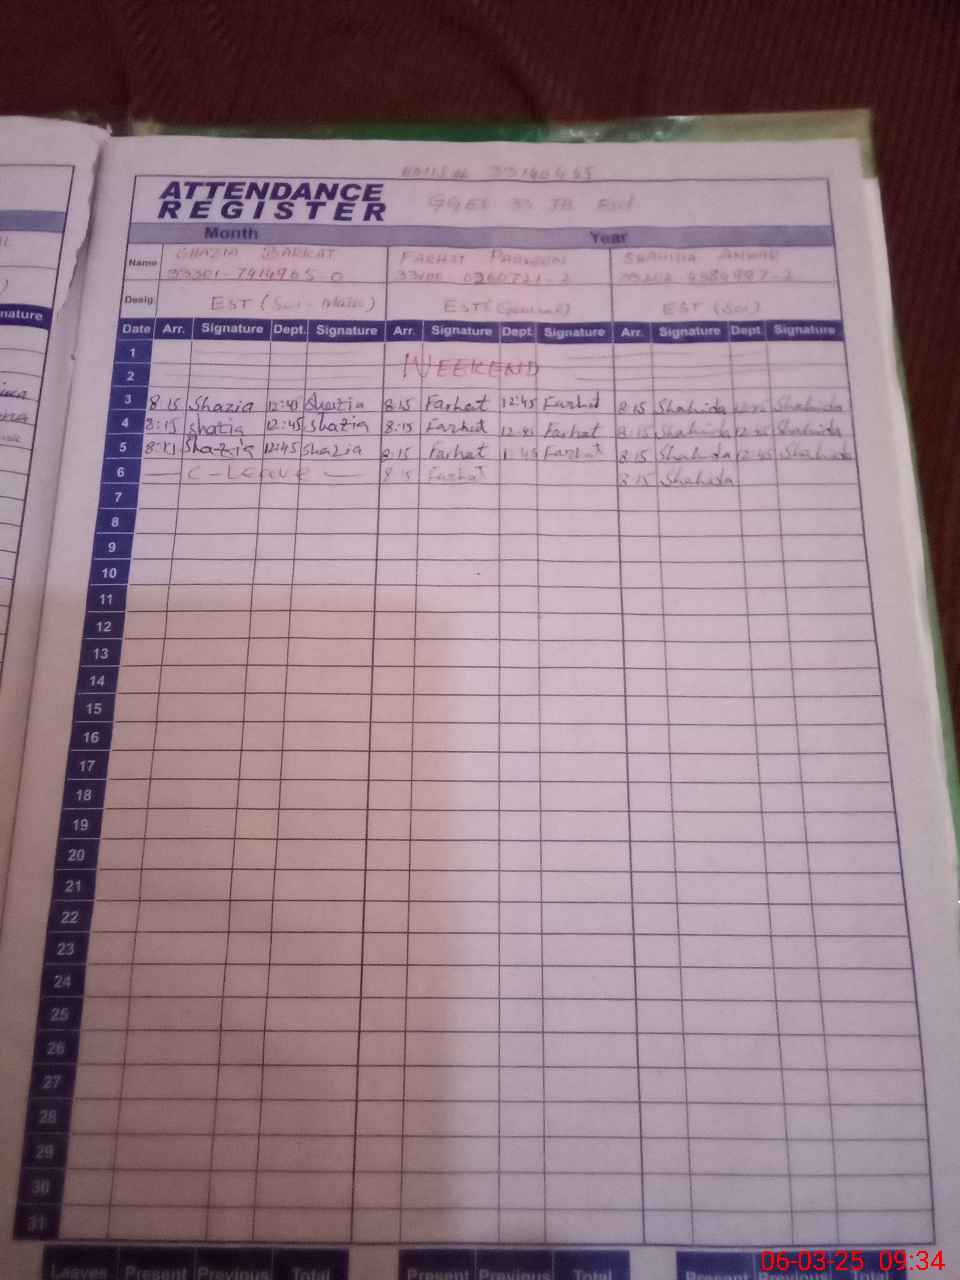 EMIS # 33140465
ATTENDANCE
REGISTER
GGES 33 JB Fsd
Month Year
Name GHAZIA BARKAT FARHAT PARVEEN SHAHIDA ANWAR
Desig. EST (Sci-Math) EST (General) EST (Sci)
nature
Date Arr. Signature Dept. Signature Arr. Signature Dept. Signature Arr. Signature Dept. Signature
1
2 WEEKEND
3 8 15 Shazia 12:45 Shazia 8:15 Farhat 12:45 Farhat 8 15 Shahida Shahida
4 8:15 shazia 12:45 shazia 8:15 Farhat Farhat 8:15 Shahida Shahida
5 Shazia 12:45 shazia 8:15 Farhat Farhat 8:15 Shahida 12:45 Shahida
6 C-Leave 8 15 Farhat 8:15 Shahida
7
8
9
10
11
12
13
14
15
16
17
18
19
20
21
22
23
24
25
26
27
28
29
30
31
Leaves Present Previous Total Present Previous Total Present
06-03-25 09:34